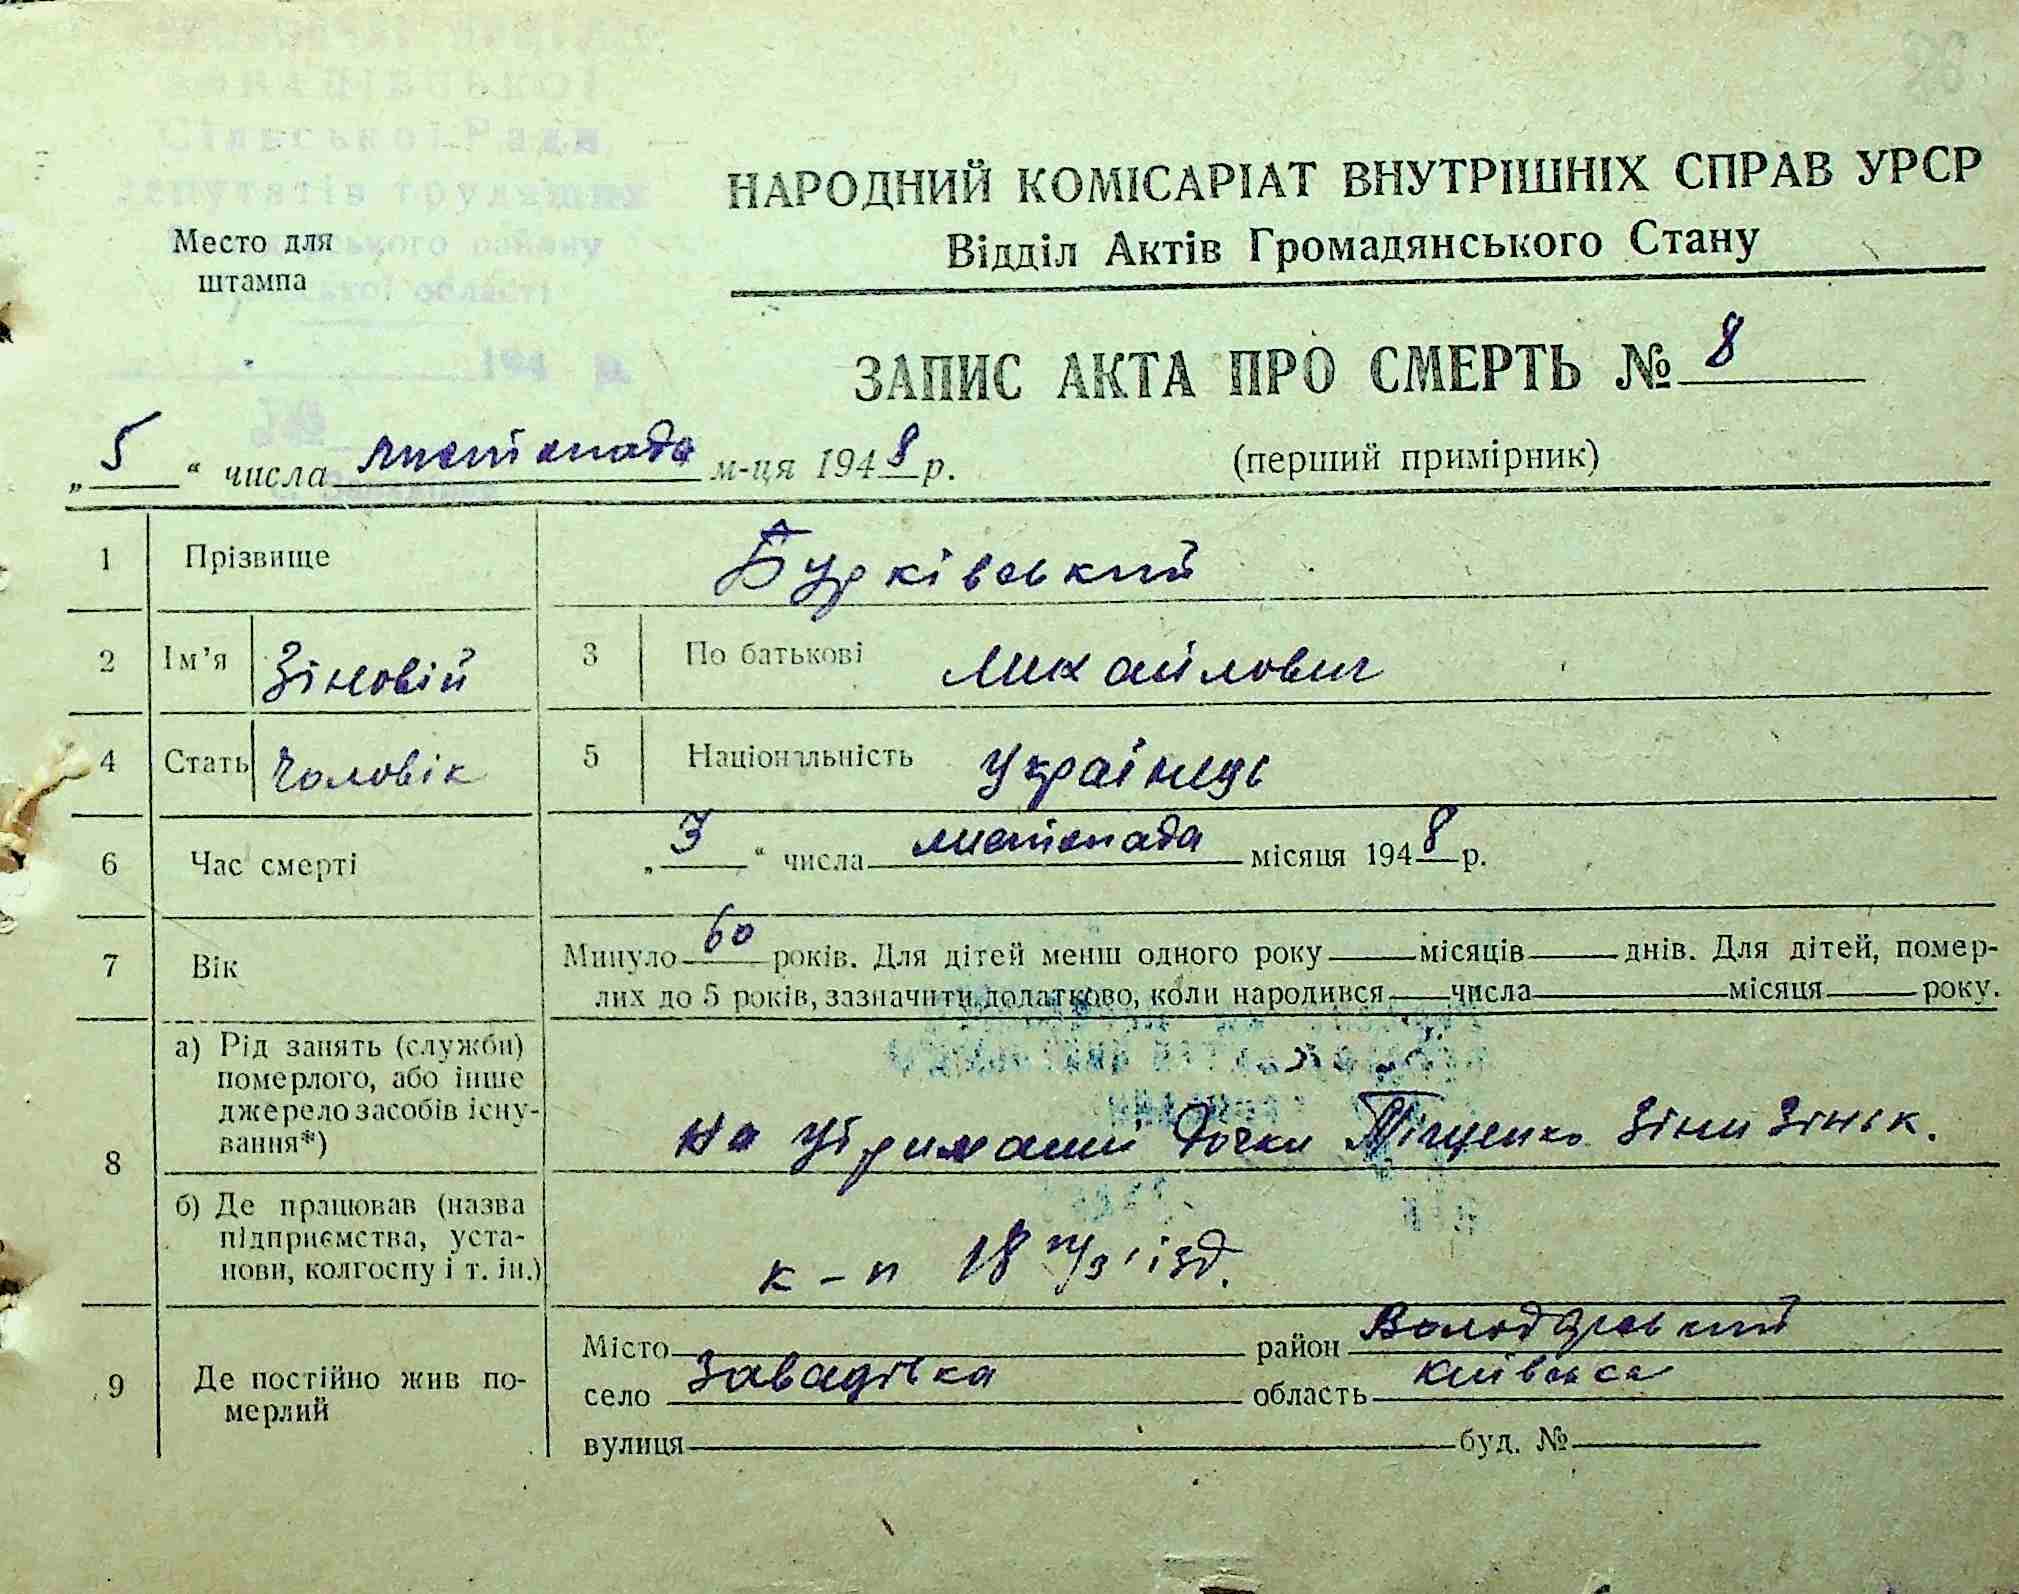 28
Сільської Ради
депутатів трудящих
ського району
ської області
194 р.
Место для
штампа
НАРОДНИЙ КОМІСАРІАТ ВНУТРІШНІХ СПРАВ УРСР
Відділ Актів Громадянського Стану
ЗАПИС АКТА ПРО СМЕРТЬ № 8
„5“ числа листопада м-ця 1948 р.
(перший примірник)
1 Прізвище Бурківський
2 Ім’я Зіновій 3 По батькові Михайлович
4 Стать Чоловік 5 Національність Українець
6 Час смерті „3“ числа листопада місяця 1948 р.
7 Вік Минуло 60 років. Для дітей менш одного року місяців днів. Для дітей, помер-
лих до 5 років, зазначити додатково, коли народився числа місяця року.
8 а) Рід занять (служби)
померлого, або інше
джерело засобів існу-
вання*)
На утриманні дочки Тищенко Зіни Зінік.
б) Де працював (назва
підприємства, уста-
нови, колгоспу і т. ін.)
к-п 18 п/з'їзд.
9 Де постійно жив по-
мерлий
Місто район Володарський
село Завадівка область Київська
вулиця буд. №